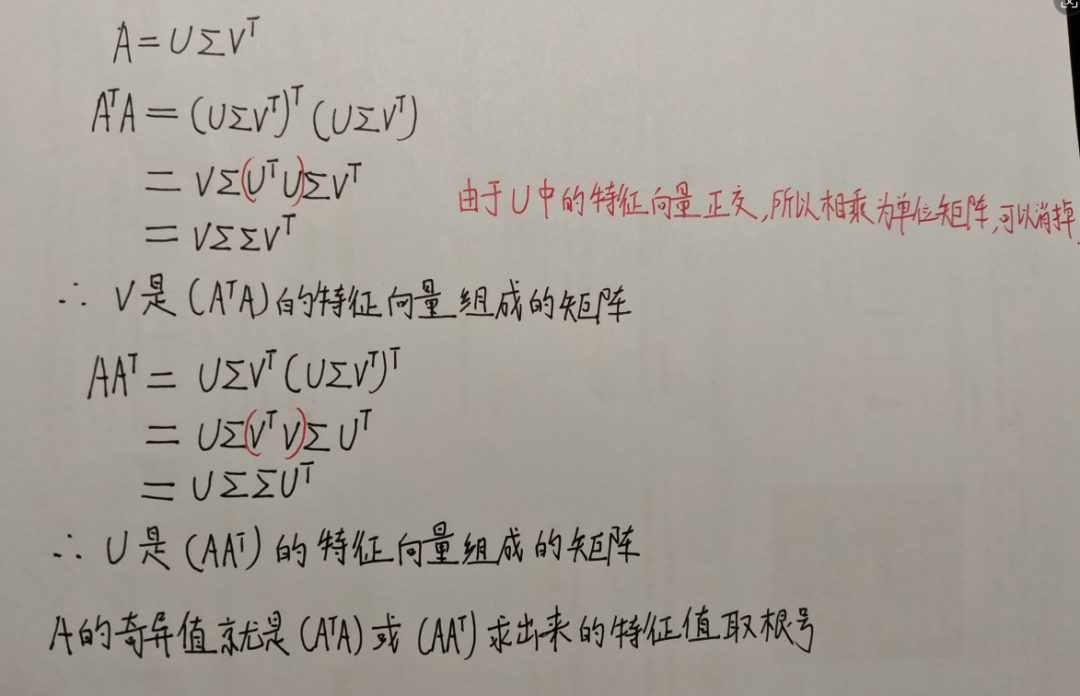 A = UΣVᵀ
AᵀA = (UΣVᵀ)ᵀ (UΣVᵀ)
= VΣ(UᵀU)ΣVᵀ
由于U中的特征向量正交,所以相乘为单位矩阵,可以消掉
= VΣΣVᵀ
∴ V是(AᵀA)的特征向量组成的矩阵
AAᵀ = UΣVᵀ(UΣVᵀ)ᵀ
= UΣ(VᵀV)ΣUᵀ
= UΣΣUᵀ
∴ U是(AAᵀ)的特征向量组成的矩阵
A的奇异值就是(AᵀA)或(AAᵀ)求出来的特征值取根号